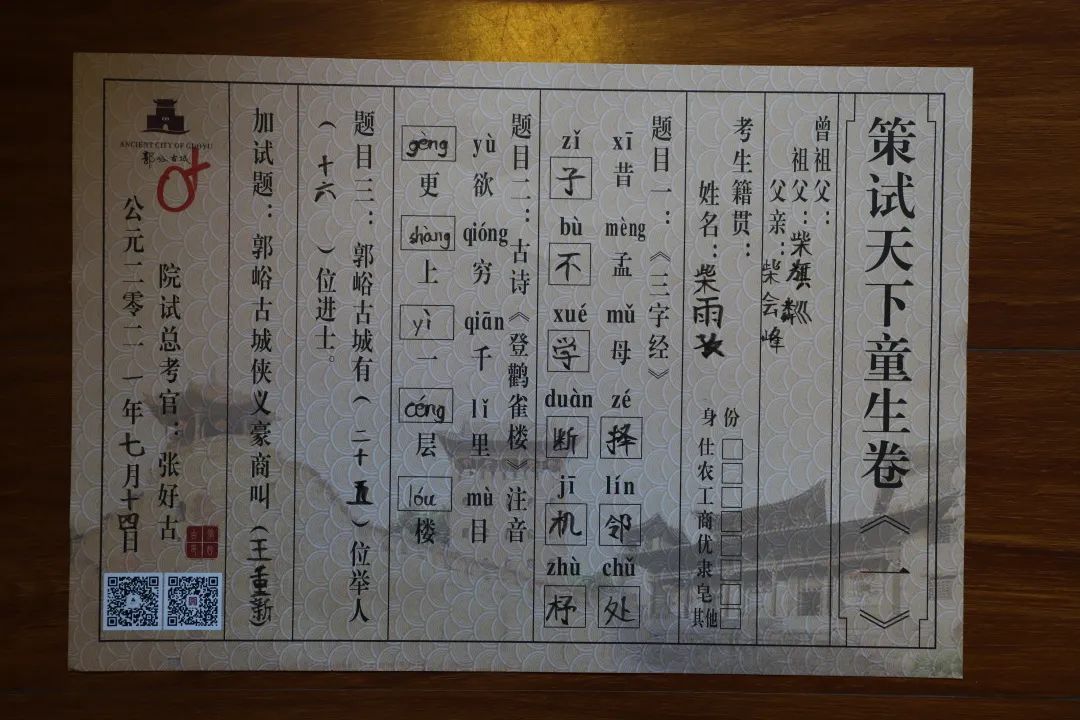 策试天下童生卷《一》
曾祖父：
祖父：柴旗
父亲：柴会峰
考生籍贯：
姓名：柴雨
身份
仕
农
工
商
优
隶
皂
其他
题目一：《三字经》
xī mèng mǔ zé lín chǔ
昔孟母择邻处
zǐ bù xué duàn jī zhù
子不学断机杼
题目二：古诗《登鹳雀楼》注音
yù qióng qiān lǐ mù
欲穷千里目
gèng shàng yì céng lóu
更上一层楼
题目三：郭峪古城有（二十五）位举人
（十六）位进士。
加试题：郭峪古城侠义豪商叫（王重新）
ANCIENT CITY OF GUOYU
郭峪古城
院试总考官：张好古
公元二零二一年七月十四日